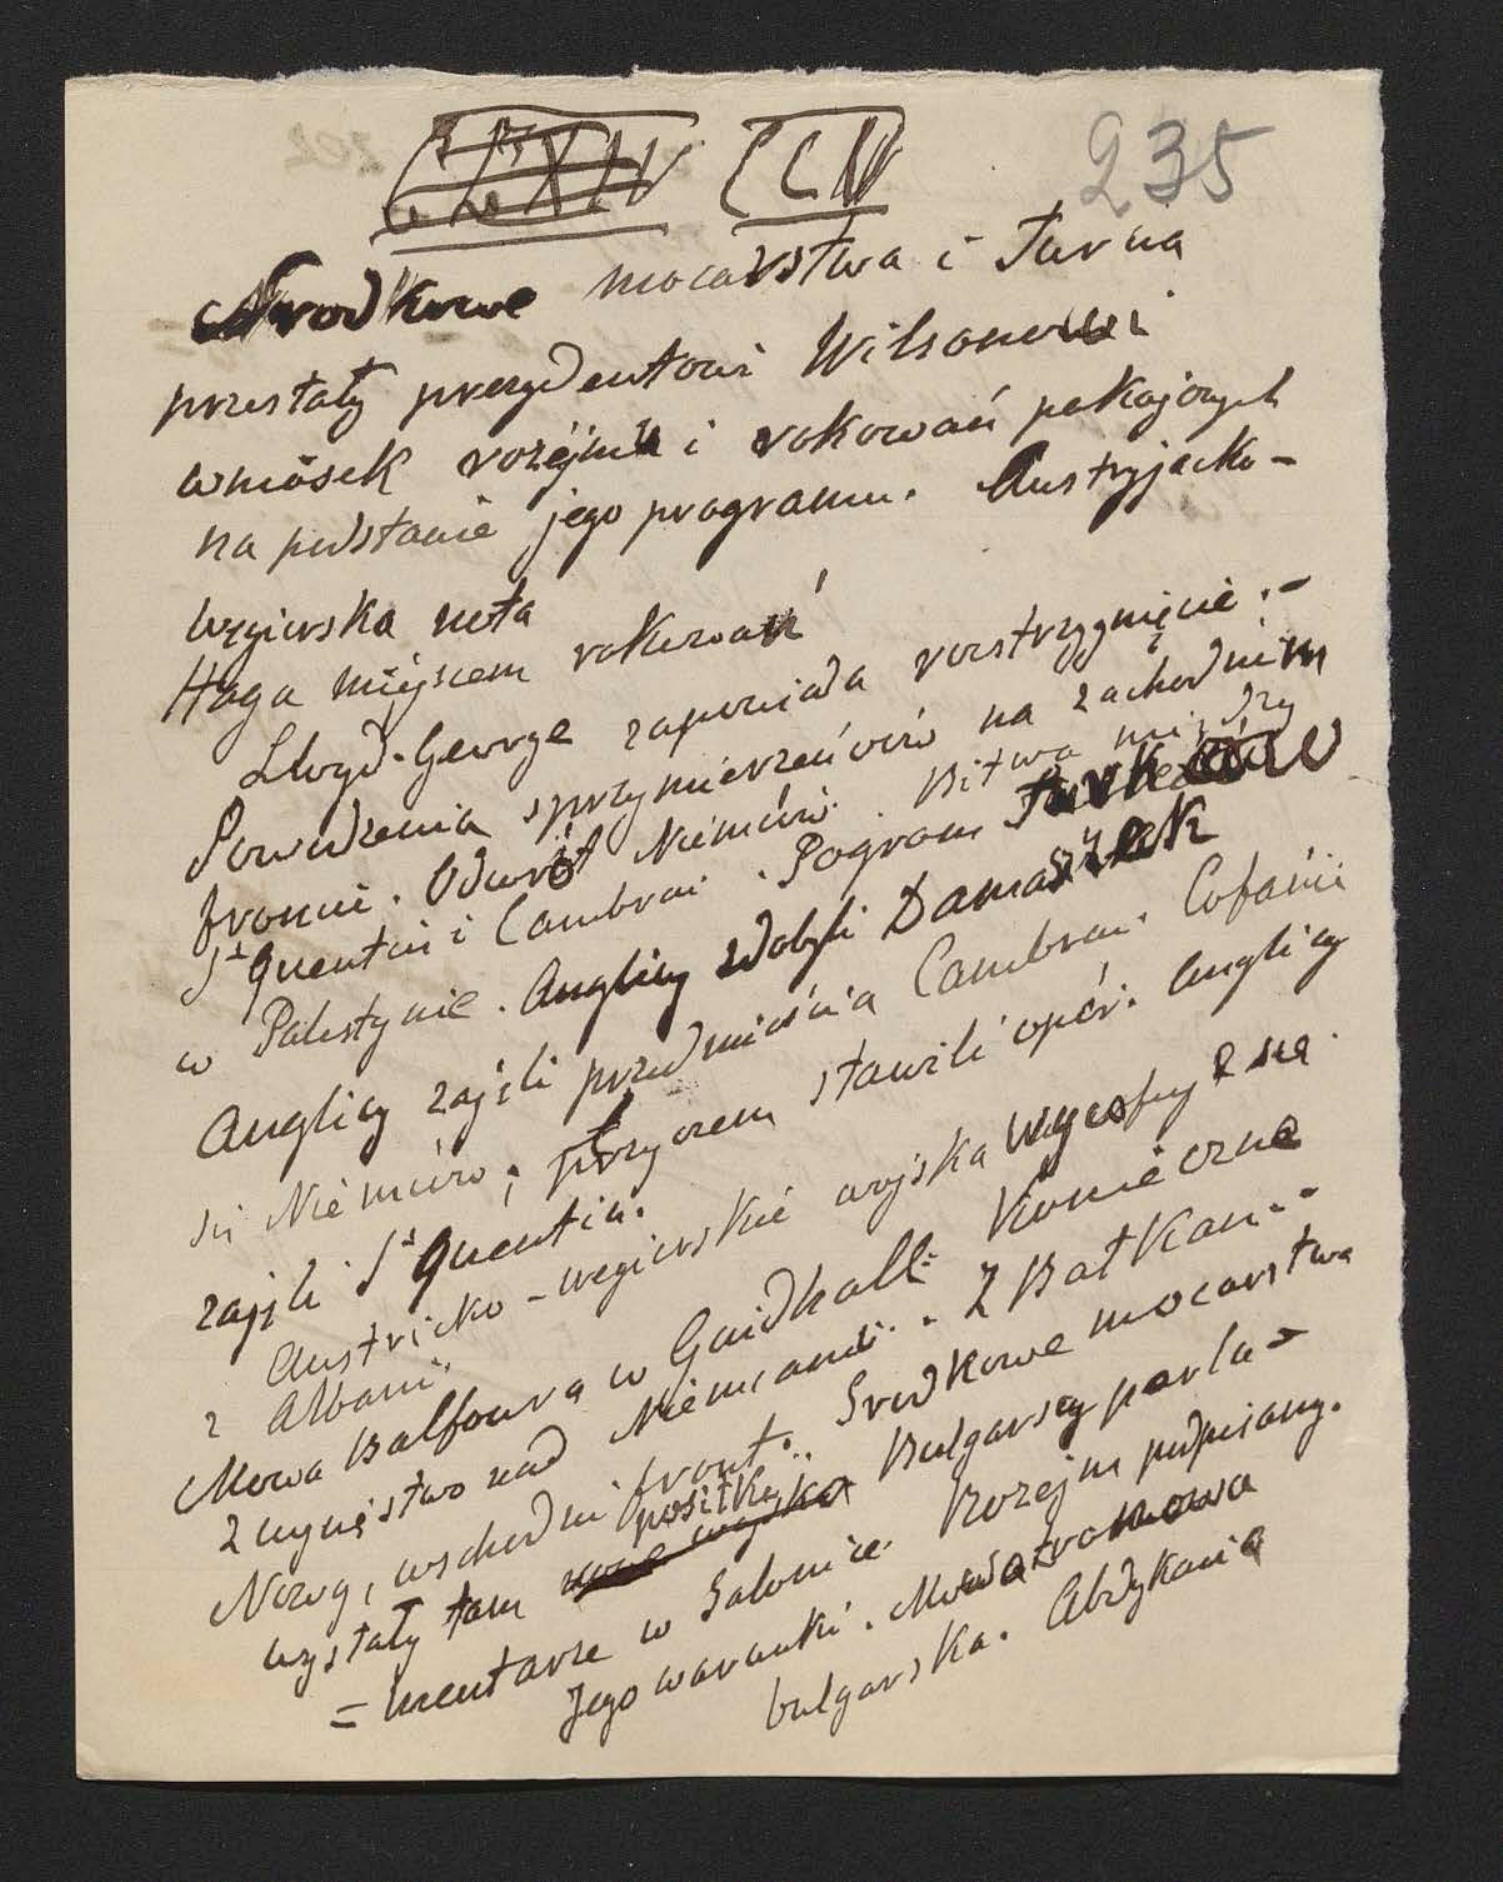 CLXXIV CCIV 235
Środkowe mocarstwa i Turcia
przesłały prezydentowi Wilsonowi
wniosek rozejmu i rokowań pokojowych
na podstawie jego programu. Austryjacko-
węgierska nota
Haga miejscem rokowań
Lloyd-George zapowiada rozstrzygnięcie.-
Powodzenia sprzymierzeńców na zachodnim
froncie. Odwrót Niemców. Bitwa między
St Quentin i Cambrai. Pogrom Turków
w Palestynie. Anglicy zdobyli Damaszek
Anglicy zajęli przedmieścia Cambrai. Cofanie
się Niemców; przyczem stawili opór. Anglicy
zajęli St Quentin.
Austricko-wegierskie wojska wycofują się
z Albanii
Mowa Balfoura w Guidhall: Konieczne
zwycięstwo nad Niemcami. Z Bałkan..
Nowy, wschodni front. Srodkowe mocarstwa
wysłały tam nowe wojska posiłki Bulgarscy parla-
=mentarze w Salonice. Rozejm podpisany.
Jego warunki. Mowa tronowa
bulgarska. Abdykacia